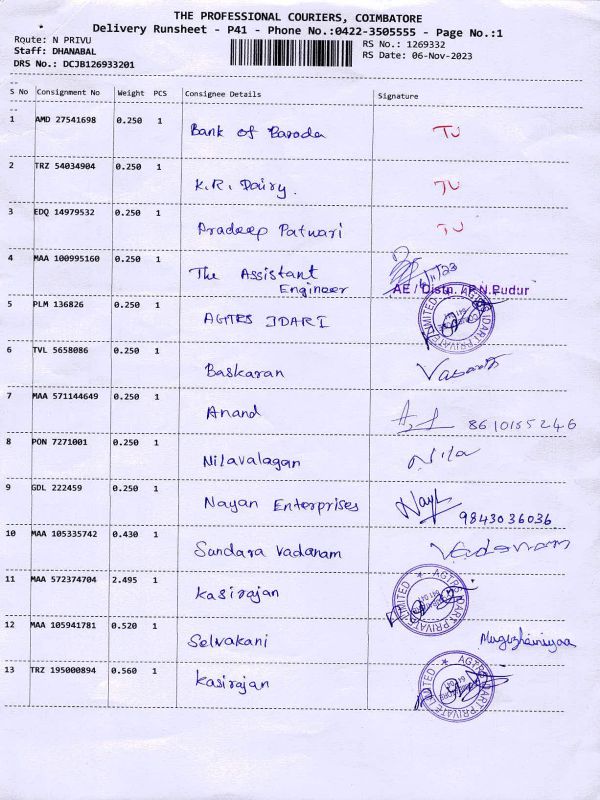 THE PROFESSIONAL COURIERS, COIMBATORE
Delivery Runsheet - P41 - Phone No.:0422-3505555 - Page No.:1
Route: N PRIVU
RS No.: 1269332
Staff: DHANABAL
RS Date: 06-Nov-2023
DRS No.: DCJB126933201
S No Consignment No Weight PCS Consignee Details Signature
1 AMD 27541698 0.250 1 Bank of Baroda TU
2 TRZ 54034904 0.250 1 K.R. Dairy. TU
3 EDQ 14979532 0.250 1 Pradeep Patwari TU
4 MAA 100995160 0.250 1 The Assistant
Engineer
6/11/23
AE / Distn. / P.N.Pudur
5 PLM 136826 0.250 1 AGTES IDARI
6 TVL 5658086 0.250 1 Baskaran Vasanth
7 MAA 571144649 0.250 1 Anand 8610155246
8 PON 7271001 0.250 1 Nilavalagan Nila
9 GDL 222459 0.250 1 Nayan Enterprises 9843036036
10 MAA 105335742 0.430 1 Sundara Vadanam Vadanam
11 MAA 572374704 2.495 1 Kasirajan
12 MAA 105941781 0.520 1 Selvakani
13 TRZ 195000894 0.560 1 Kasirajan